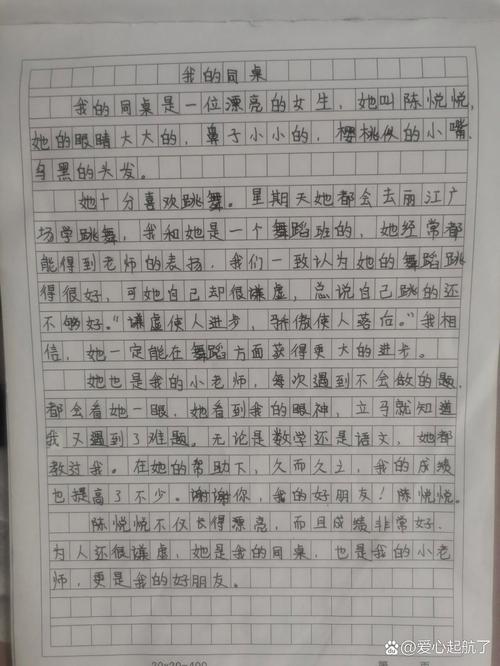 我的同桌
我的同桌是一位漂亮的女生，她叫陈悦悦，
她的眼睛大大的，鼻子小小的，樱桃似的小嘴，
乌黑的头发。
她十分喜欢跳舞。星期天她都会去丽江广
场学跳舞，我和她是一个舞蹈班的，她经常都
能得到老师的表扬，我们一致认为她的舞蹈跳
得很好，可她自己却很谦虚，总说自己跳的还
不够好。“谦虚使人进步，骄傲使人落后。”我相
信，她一定能在舞蹈方面获得更大的进步。
她也是我的小老师，每次遇到不会做的题，
都会看她一眼，她看到我的眼神，立马就知道
我又遇到了难题。无论是数学还是语文，她都
教过我。在她的帮助下，久而久之，我的成绩
也提高了不少。谢谢你，我的好朋友！陈悦悦。
陈悦悦不仅长得漂亮，而且成绩非常好，
为人还很谦虚，她是我的同桌，也是我的小老
师，更是我的好朋友。
20×20=400
第 页
@爱心起航了